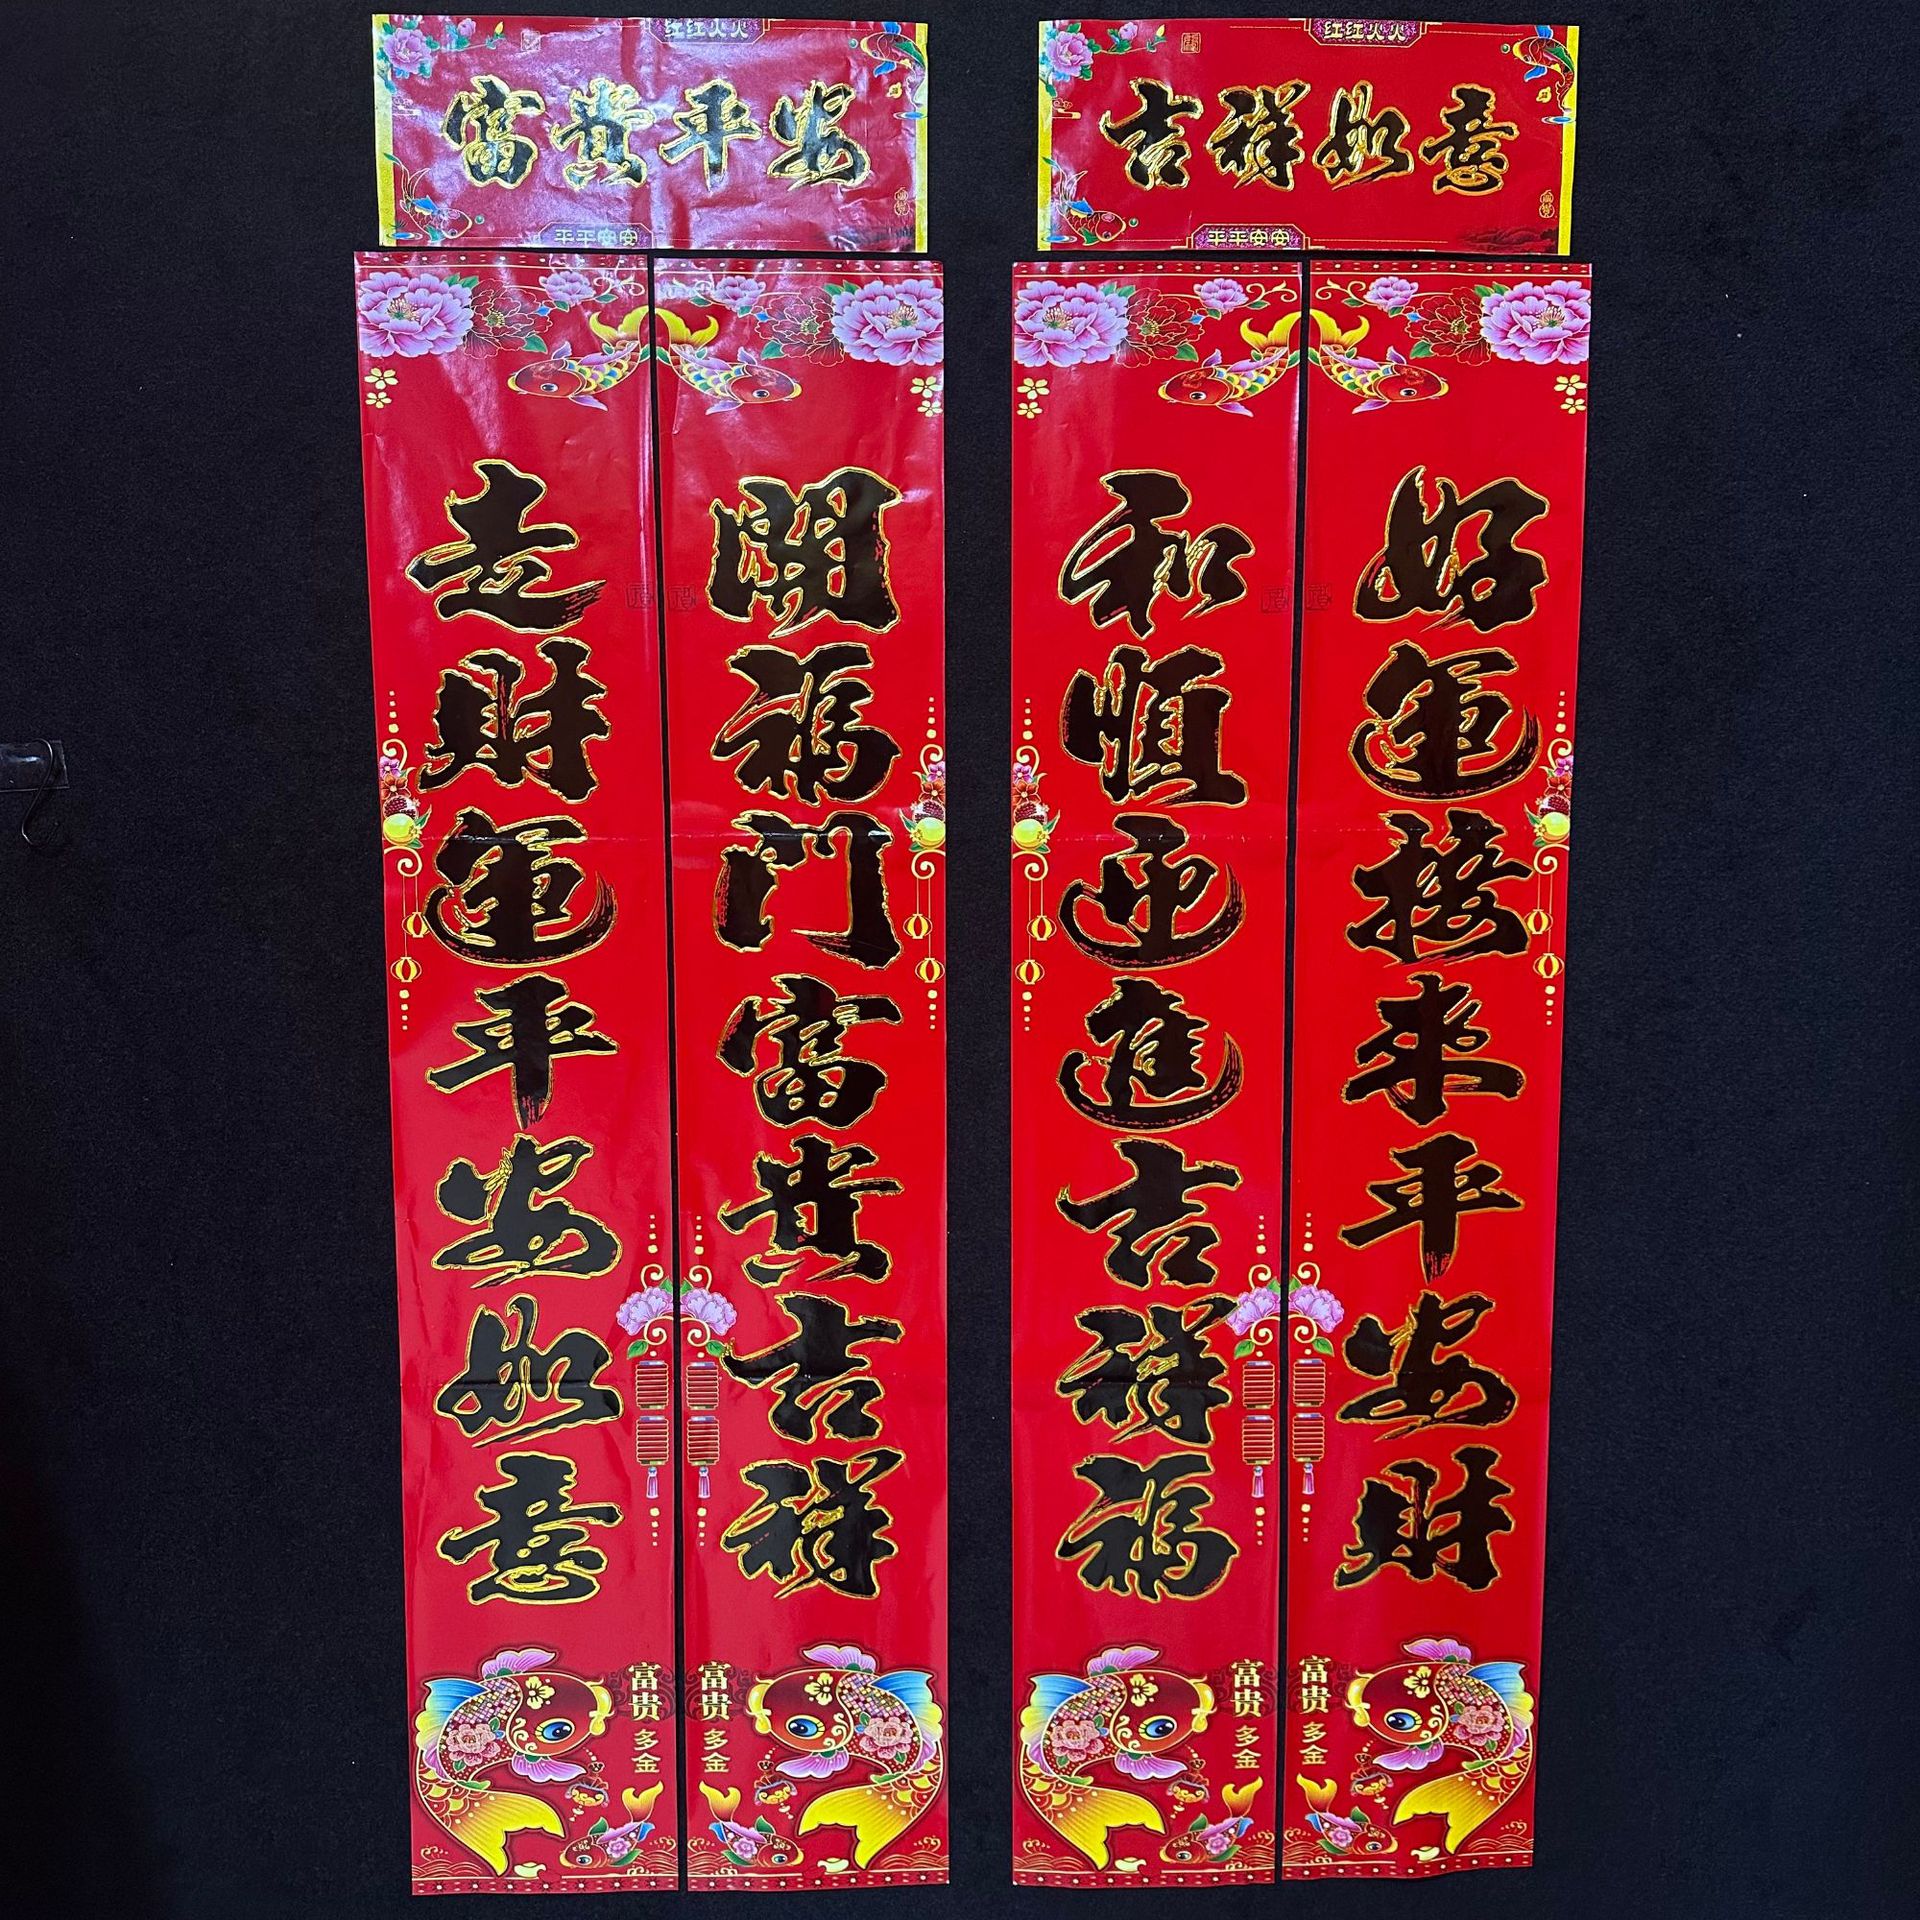 红红火火
富貴平安
平平安安
红红火火
吉祥如意
平平安安
走財運平安如意
開福門富貴吉祥
和順迎進吉祥福
好運接來平安財
富贵
多金
富贵
多金
富贵
多金
富贵
多金